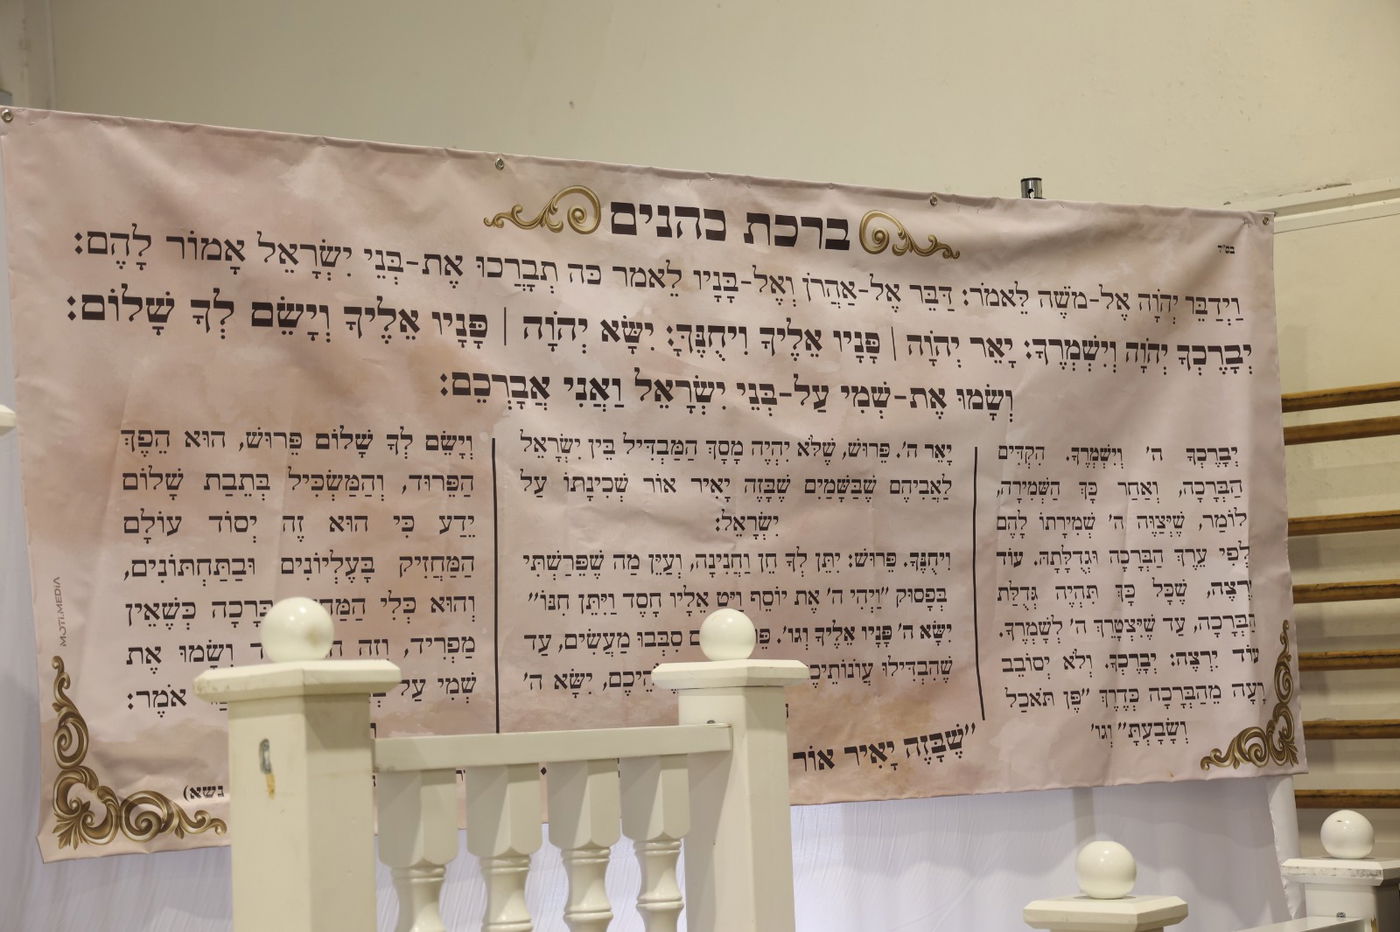 בס"ד
ברכת כהנים
וַיְדַבֵּר יְהֹוָה אֶל-מֹשֶׁה לֵּאמֹר: דַּבֵּר אֶל-אַהֲרֹן וְאֶל-בָּנָיו לֵאמֹר כֹּה תְבָרֲכוּ אֶת-בְּנֵי יִשְׂרָאֵל אָמוֹר לָהֶם:
יְבָרֶכְךָ יְהֹוָה וְיִשְׁמְרֶךָ: יָאֵר יְהֹוָה | פָּנָיו אֵלֶיךָ וִיחֻנֶּךָּ: יִשָּׂא יְהֹוָה | פָּנָיו אֵלֶיךָ וְיָשֵׂם לְךָ שָׁלוֹם:
וְשָׂמוּ אֶת-שְׁמִי עַל-בְּנֵי יִשְׂרָאֵל וַאֲנִי אֲבָרְכֵם:
יְבָרֶכְךָ ה' וְיִשְׁמְרֶךָ. הִקְדִּים
הַבְּרָכָה, וְאַחַר כָּךְ הַשְּׁמִירָה,
לוֹמַר, שֶׁיְּצַוֶּה ה' שְׁמִירָתוֹ לָהֶם
לְפִי עֵרֶךְ הַבְּרָכָה וּגְדֻלָּתָהּ. עוֹד
יִרְצֶה, שֶׁכָּל כָּךְ תִּהְיֶה גְּדֻלַּת
הַבְּרָכָה, עַד שֶׁיִּצְטָרֵךְ ה' לְשָׁמְרֶךָ.
עוֹד יִרְצֶה: יְבָרֶכְךָ. וְלֹא יְסוֹבֵב
רָעָה מֵהַבְּרָכָה כְּדֶרֶךְ "פֶּן תֹּאכַל
וְשָׂבָעְתָּ" וְגוֹ'
יָאֵר ה'. פֵּרוּשׁ, שֶׁלֹּא יִהְיֶה מָסָךְ הַמַּבְדִּיל בֵּין יִשְׂרָאֵל
לַאֲבִיהֶם שֶׁבַּשָּׁמַיִם שֶׁבָּזֶה יָאִיר אוֹר שְׁכִינָתוֹ עַל
יִשְׂרָאֵל:
וִיחֻנֶּךָּ. פֵּרוּשׁ: יִתֵּן לְךָ חֵן וַחֲנִינָה, וְעַיֵּן מַה שֶּׁפֵּרַשְׁתִּי
בְּפָסוּק "וַיְהִי ה' אֶת יוֹסֵף וַיֵּט אֵלָיו חָסֶד וַיִּתֵּן חִנּוֹ"
יִשָּׂא ה' פָּנָיו אֵלֶיךָ וְגוֹ'. סִבְּבוּ מַעֲשִׂים, עַד
שֶׁהִבְדִּילוּ יִשָּׂא ה'
"שֶׁבָּזֶה יָאִיר אוֹר
וְיָשֵׂם לְךָ שָׁלוֹם פֵּרוּשׁ, הוּא הֵפֶךְ
הַפֵּרוּד, וְהַמַּשְׂכִּיל בְּתֵבַת שָׁלוֹם
יֵדַע כִּי הוּא זֶה יְסוֹד עוֹלָם
הַמַּחֲזִיק בָּעֶלְיוֹנִים וּבַתַּחְתּוֹנִים,
וְהוּא כְּלִי בְּרָכָה כְּשֶׁאֵין
מַפְרִיד, וְזֶה וְשָׂמוּ אֶת
שְׁמִי עַל אֹמֶר:
נשא)
MOTI.MEDIA